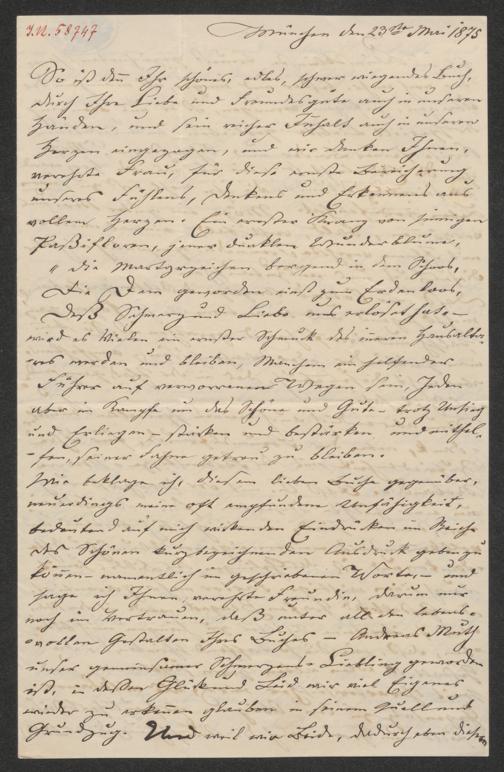 J.N. 58747
München den 23ten Mai 1875
So ist denn Ihr schönes, edles, schwer wiegendes Buch,
durch Ihre Liebe und Freundesgüte auch in unseren
Händen, und sein reicher Inhalt auch in unseren
Herzen eingezogen, und wir danken Ihnen,
verehrte Frau, für diese ernste Bereicherung
unseres Fühlens, Denkens und Erkennens aus
vollem Herzen. Ein ernster Kranz von sinnigen
Passifloren, jener dunklen Wunderblume,
"die Marterzeichen bergend in dem Schoos,
Die Dem geworden einst zum Erdenloos,
Deß Schmerz und Liebe uns erlöset hat" –
wird es Vielen ein ernster Schmuck des inneren Hausalta-
-res werden und bleiben, Manchem ein helfender
Führer auf verworrenen Wegen sein, Jeden
aber im Kampfe um das Schöne und Gute – trotz
und Erliegen – stärken und bestärken und mithel-
-fen, seiner Fahne getreu zu bleiben.
Wie beklage ich, diesem lieben Buche gegenüber,
neuerdings meine oft empfundene Unfähigkeit,
bedeutend auf mich wirkenden Eindrücken im Reiche
des Schönen kurz bezeichnenden Ausdruck geben zu
können – namentlich im geschriebenen Worte, – und
sage ich Ihnen, verehrte Freundin, darum nur
noch im Vertrauen, daß unter all den lebens-
-vollen Gestalten Ihres Buches – Andreas Muth
unser gemeinsamer Schmerzens-Liebling geworden
ist, in dessen Glück und Leid wir viel Eigenes
wieder zu erkennen glauben in seinem Quell und
Grundzug. Und weil wir Beide, dadurch eben diesem